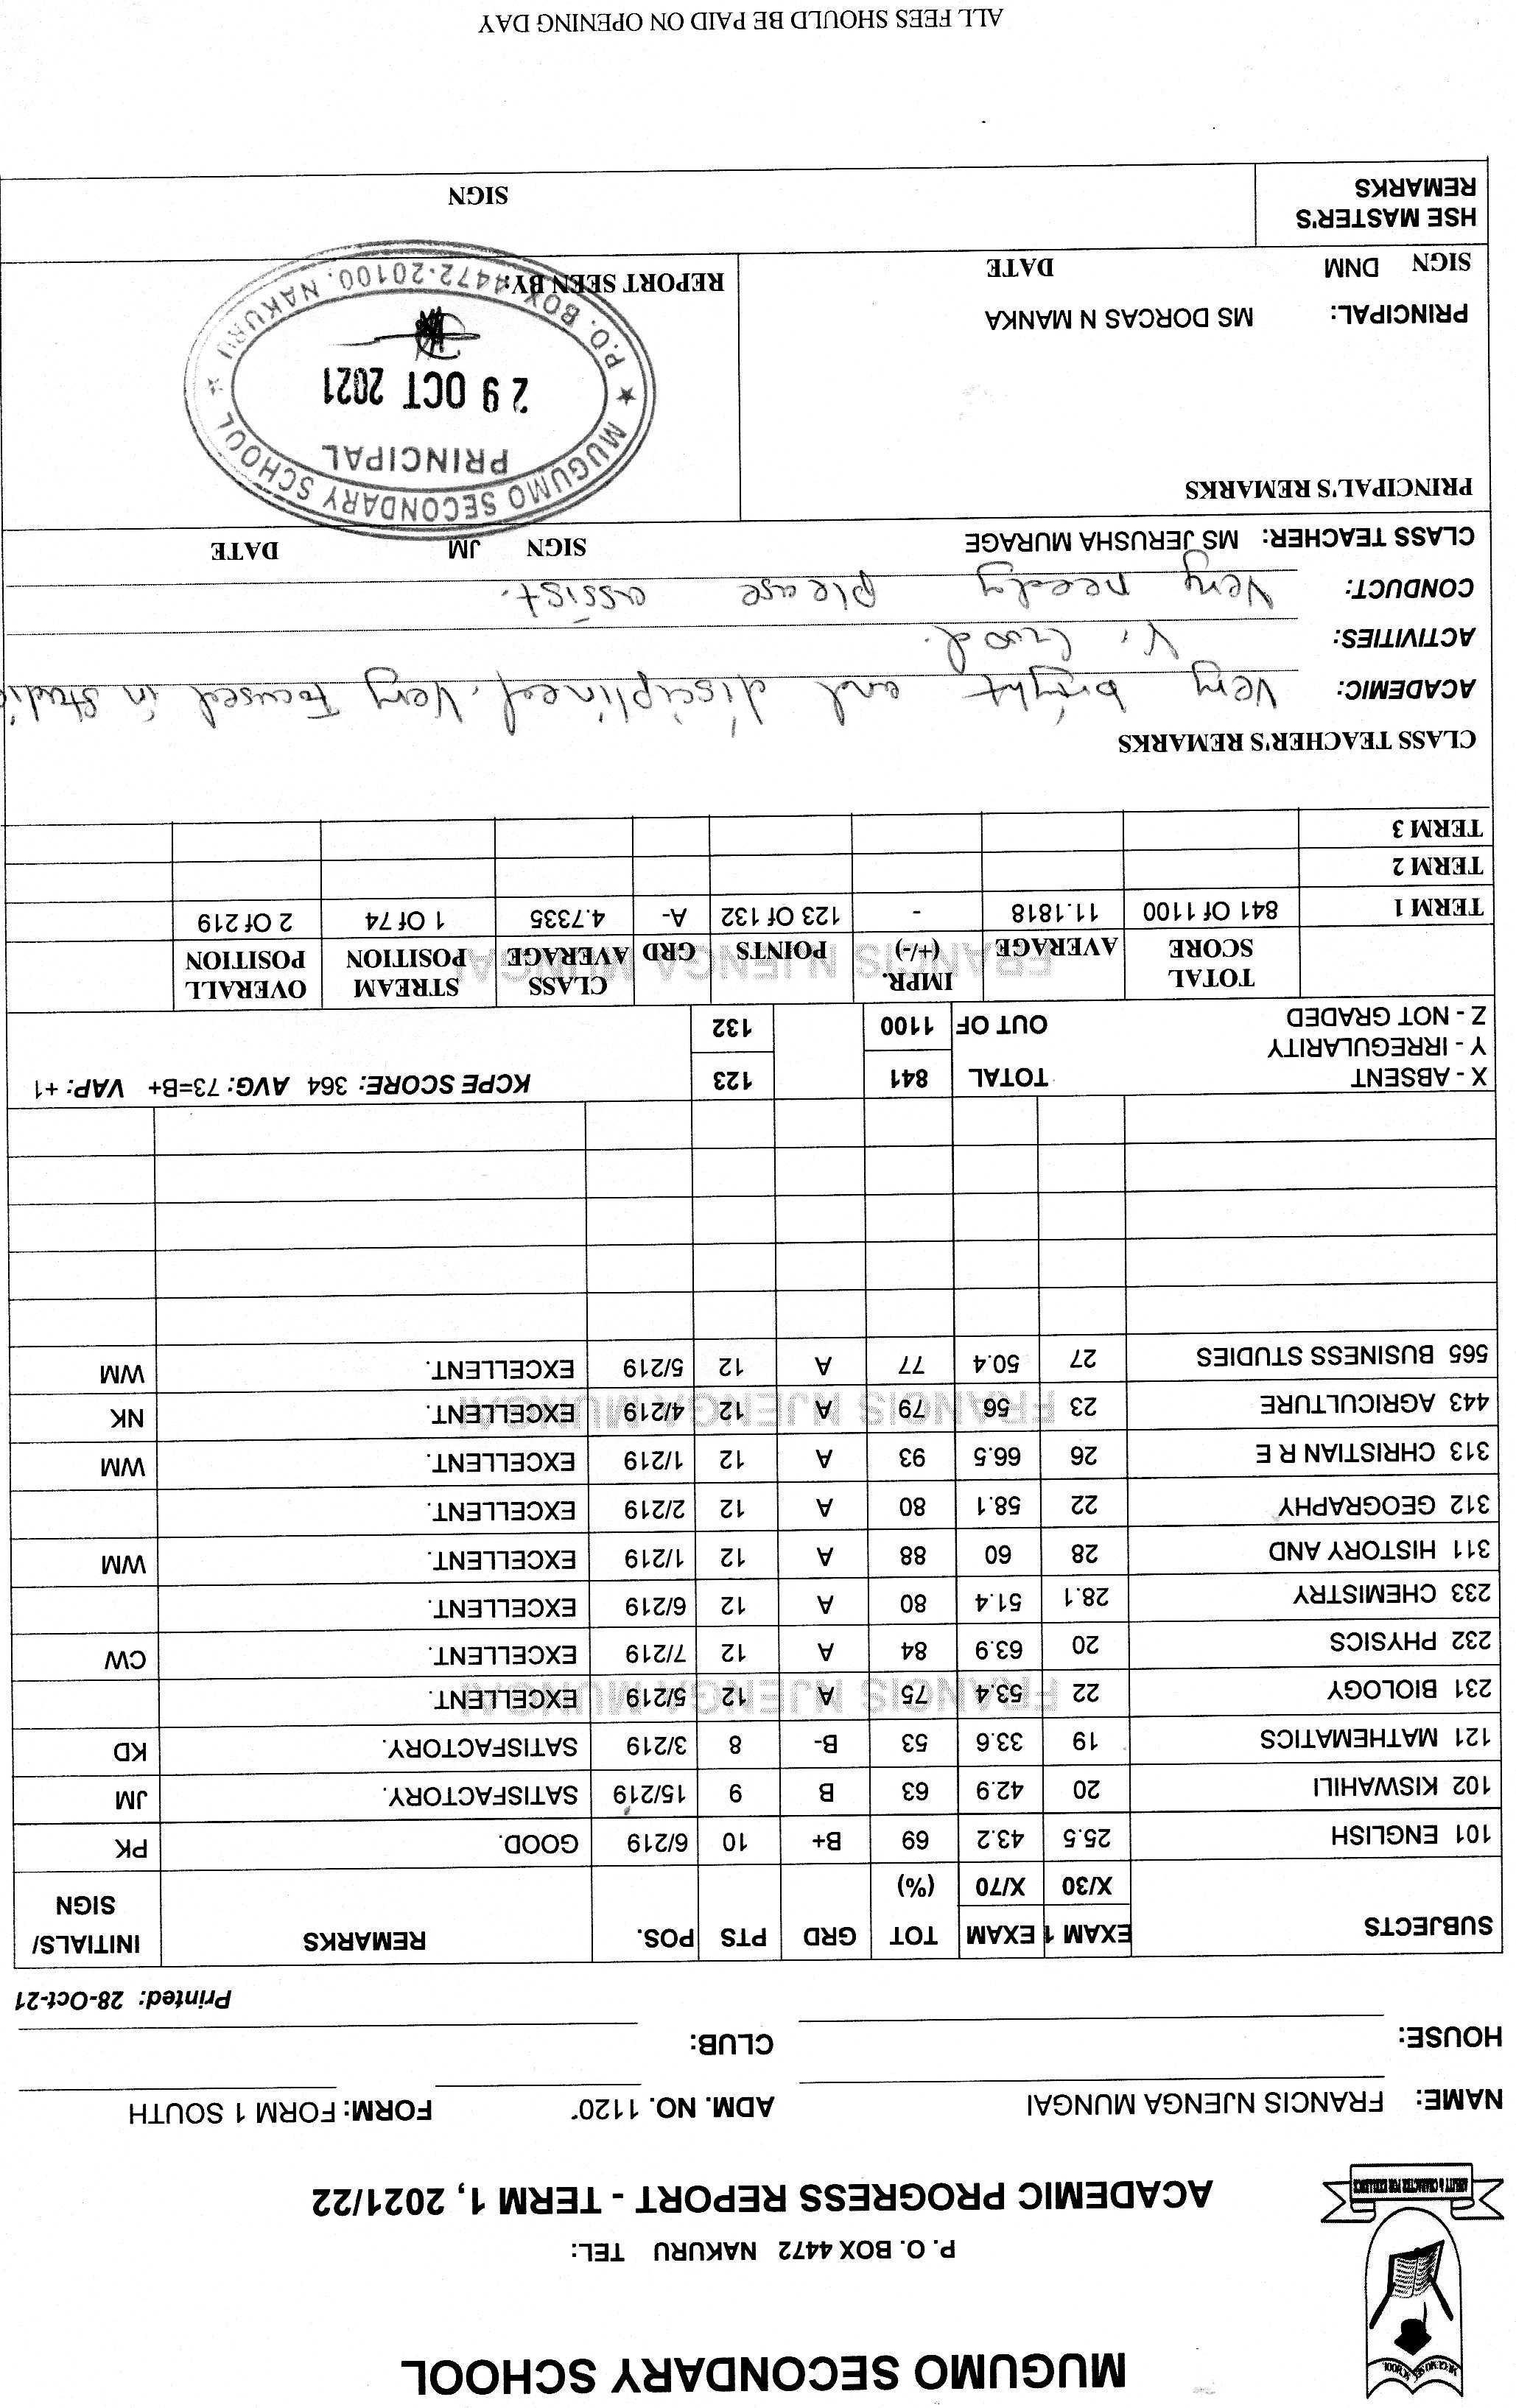 MUGUMO SEC SCHOOL
MUGUMO SECONDARY SCHOOL
P. O. BOX 4472 NAKURU TEL:
ACADEMIC PROGRESS REPORT - TERM 1, 2021/22
NAME: FRANCIS NJENGA MUNGAI ADM. NO. 1120 FORM: FORM 1 SOUTH
HOUSE: CLUB:
Printed: 28-Oct-21
SUBJECTS EXAM 1 EXAM TOT GRD PTS POS. REMARKS INITIALS/
X/30 X/70 (%) SIGN
101 ENGLISH 25.5 43.2 69 B+ 10 6/219 GOOD. PK
102 KISWAHILI 20 42.9 63 B 9 15/219 SATISFACTORY. JM
121 MATHEMATICS 19 33.6 53 B- 8 3/219 SATISFACTORY. KD
FRANCIS NJENGA MUNGAI
231 BIOLOGY 22 53.4 75 A 12 5/219 EXCELLENT.
232 PHYSICS 20 63.9 84 A 12 7/219 EXCELLENT. CW
233 CHEMISTRY 28.1 51.4 80 A 12 6/219 EXCELLENT.
311 HISTORY AND 28 60 88 A 12 1/219 EXCELLENT. WM
312 GEOGRAPHY 22 58.1 80 A 12 2/219 EXCELLENT.
313 CHRISTIAN R E 26 66.5 93 A 12 1/219 EXCELLENT. WM
FRANCIS NJENGA MUNGAI
443 AGRICULTURE 23 56 79 A 12 4/219 EXCELLENT. NK
565 BUSINESS STUDIES 27 50.4 77 A 12 5/219 EXCELLENT. WM
X - ABSENT TOTAL 841 123 KCPE SCORE: 364 AVG: 73=B+ VAP: +1
Y - IRREGULARITY
Z - NOT GRADED OUT OF 1100 132
FRANCIS NJENGA MUNGAI
TOTAL IMPR. CLASS STREAM OVERALL
SCORE AVERAGE (+/-) POINTS GRD AVERAGE POSITION POSITION
TERM 1 841 Of 1100 11.1818 - 123 Of 132 A- 4.7335 1 Of 74 2 Of 219
TERM 2
TERM 3
CLASS TEACHER'S REMARKS
ACADEMIC: Very bright and disciplined. Very Focused in Studi
ACTIVITIES: V. Good.
CONDUCT: Very needy please assist.
CLASS TEACHER: MS JERUSHA MURAGE SIGN JM DATE
PRINCIPAL'S REMARKS
MUGUMO SECONDARY SCHOOL
PRINCIPAL
29 OCT 2021
P.O. BOX 4472-20100, NAKURU
PRINCIPAL: MS DORCAS N MANKA
REPORT SEEN BY:
SIGN DNM DATE
HSE MASTER'S
REMARKS SIGN
ALL FEES SHOULD BE PAID ON OPENING DAY